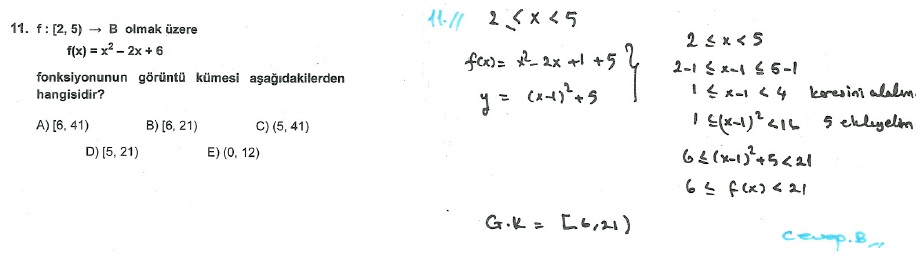 11. f : [2, 5) → B olmak üzere
f(x) = x² – 2x + 6
fonksiyonunun görüntü kümesi aşağıdakilerden
hangisidir?
A) [6, 41) B) [6, 21) C) (5, 41)
D) [5, 21) E) (0, 12)
11.// 2 ≤ x < 5
f(x) = x² - 2x + 1 + 5
y = (x-1)² + 5
G.K = [6,21)
2 ≤ x < 5
2-1 ≤ x-1 ≤ 5-1
1 ≤ x-1 < 4 karesini alalım.
1 ≤ (x-1)² < 16 5 ekleyelim
6 ≤ (x-1)² + 5 < 21
6 ≤ f(x) < 21
cevap.B,,